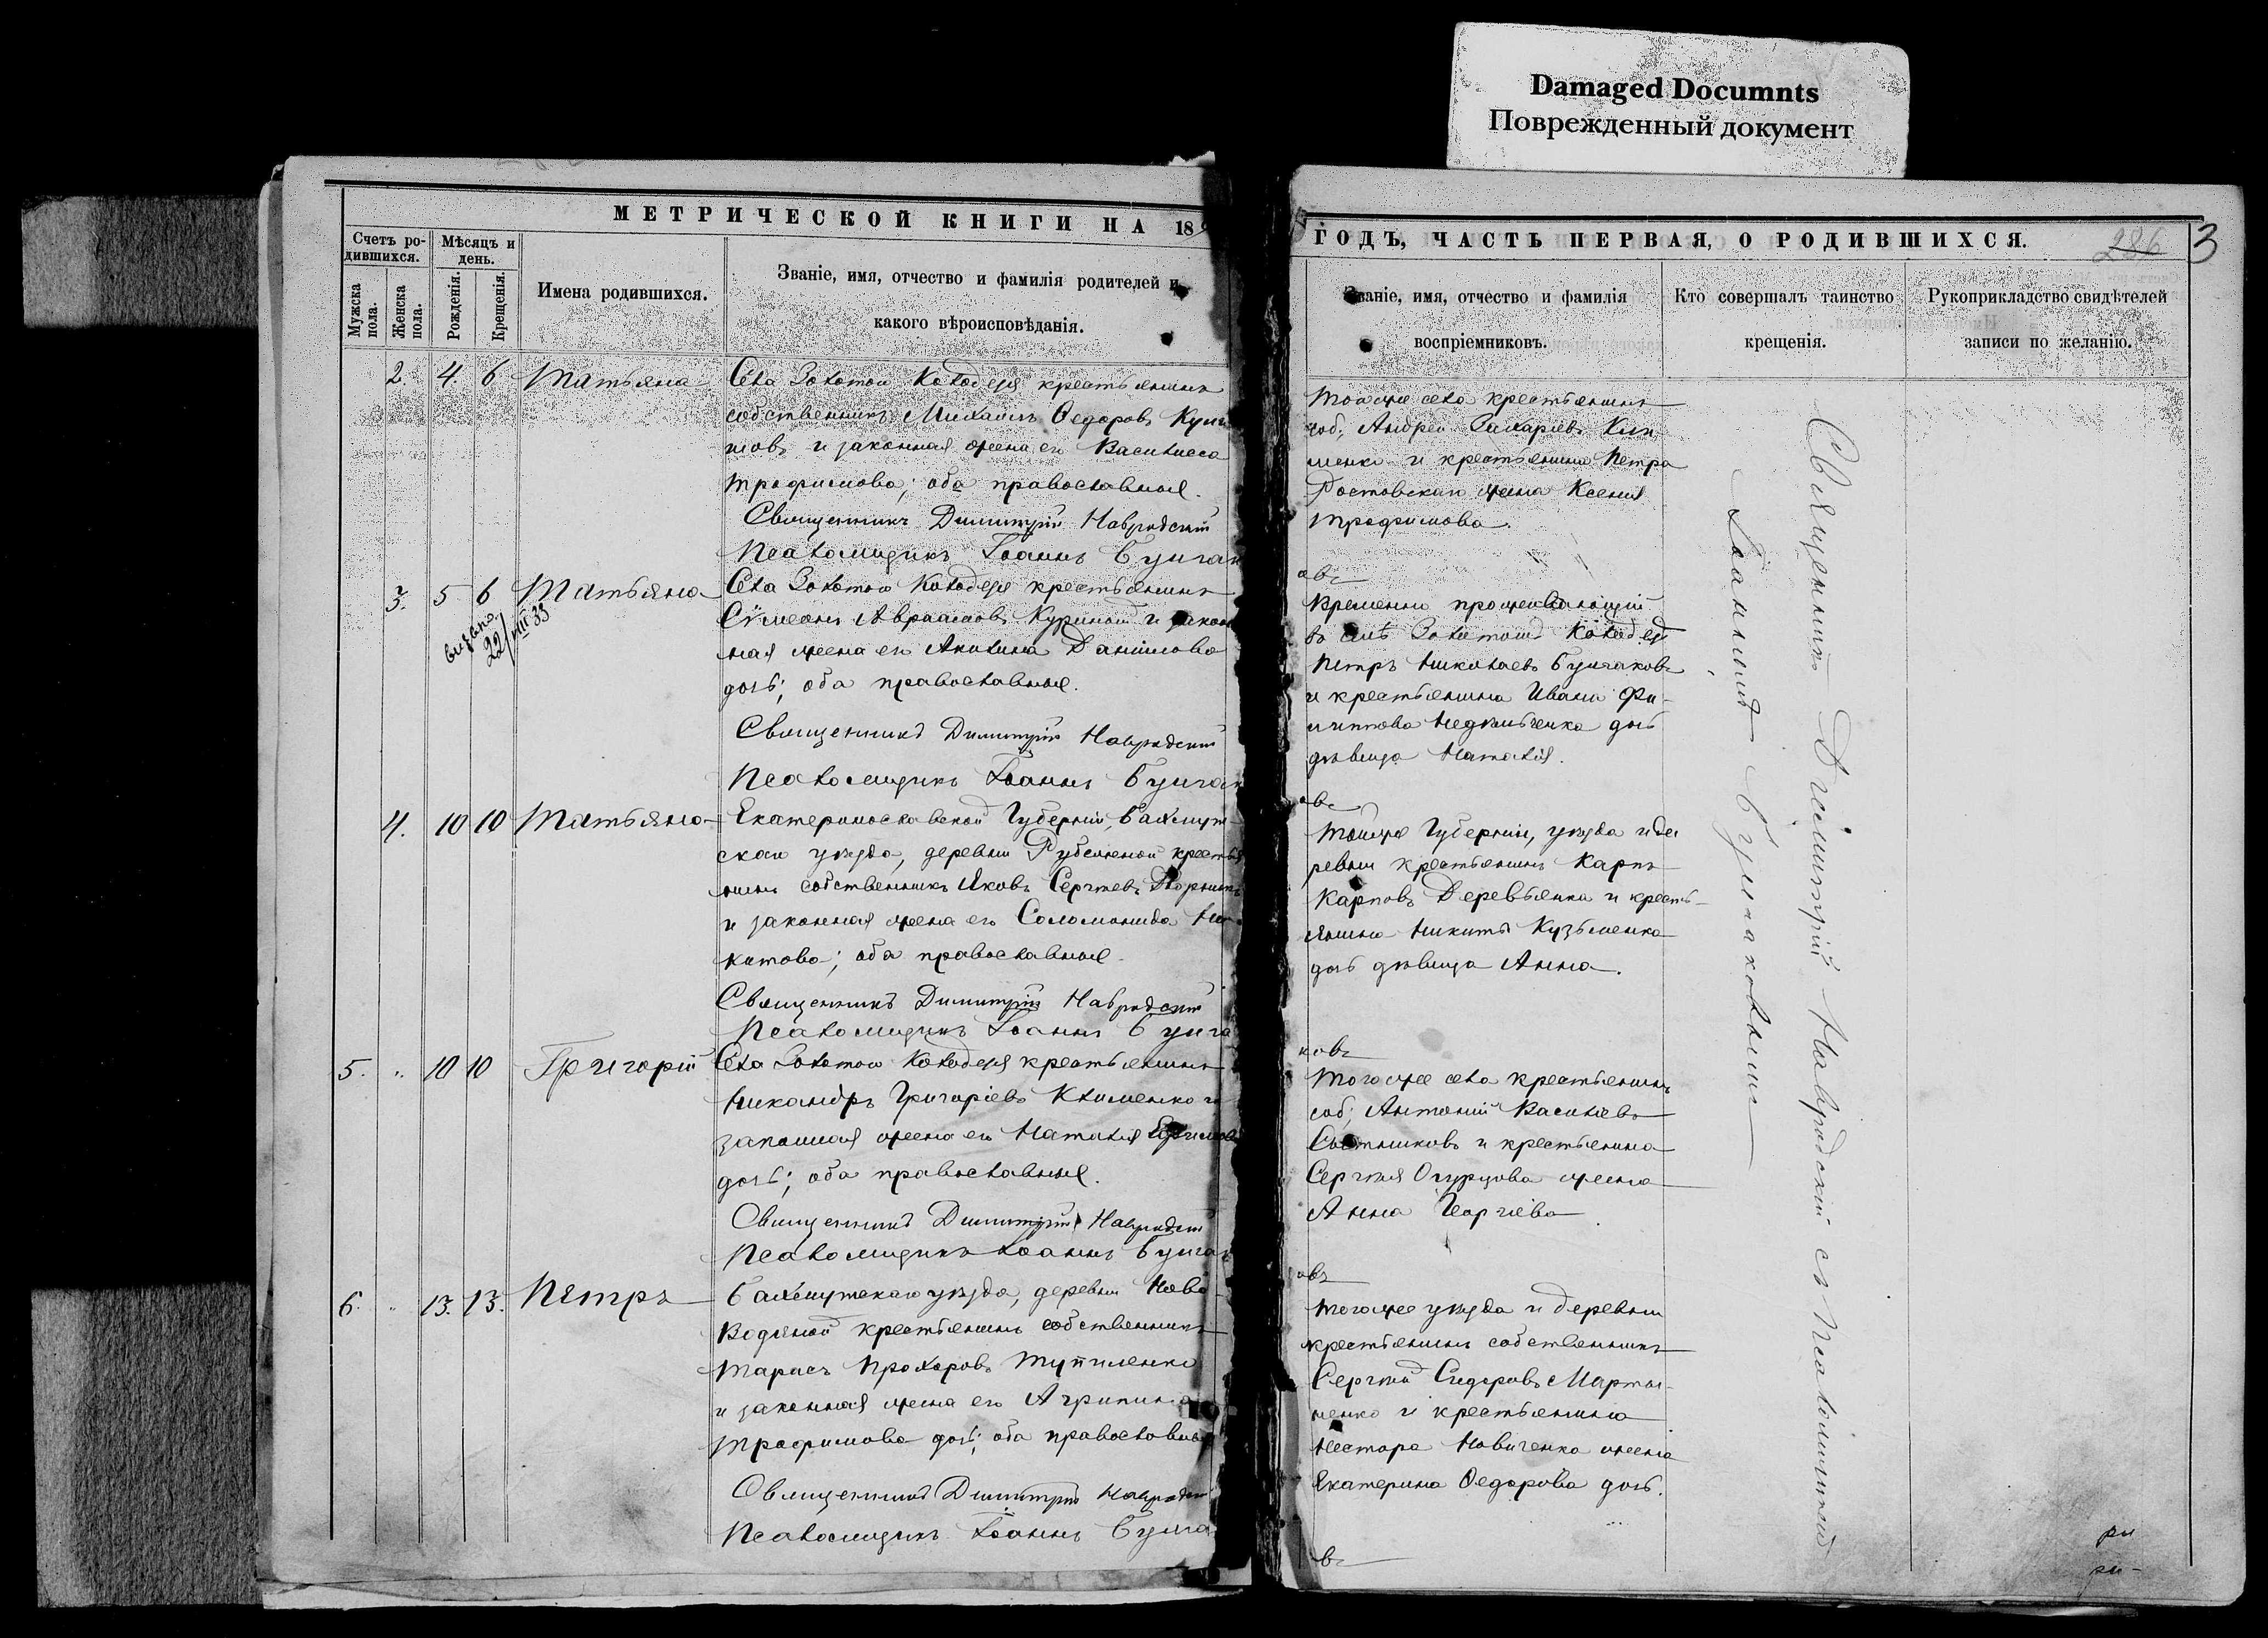 Damaged Documnts
Поврежденный документ
МЕТРИЧЕСКОЙ КНИГИ НА 18
Счетъ ро-
дившихся.
Мѣсяцъ и
день.
Мужска
пола.
Женска
пола.
Рожденія.
Крещенія.
Имена родившихся.
Званіе, имя, отчество и фамилія родителей и
какого вѣроисповѣданія.
2. 4. 6 Татьяна
Села Золотой Колодезя крестьянинъ
собственникъ Михаилъ Ѳедоровъ
и законная жена его Василиса
Трофимова; оба православные.
Священникъ Димитрій Навродскій
Псаломщикъ Іоаннъ Булгак
3. 5 6 Татьяна
22/VIII 33
Села Золотой Колодезя крестьянинъ
Сѵмеонъ Авраамовъ Куриной и закон
ная жена его Акилина Даніилова
дочь; оба православные.
Священникъ Димитрій Навродскій
Псаломщикъ Іоаннъ Булгак
4. 10 10 Татьяна
Екатеринославской Губерніи, Бахмут-
скаго уѣзда, деревни крестья
нинъ собственникъ Яковъ Сергѣевъ
и законная жена его Соломонида Ни-
китова; оба православные.
Священникъ Димитрій Навродскій
Псаломщикъ Іоаннъ Булга
5. " 10 10 Григорій
Села Золотой Колодезя крестьянинъ
Никандръ Григоріевъ Клименко и
законная жена его Наталія
дочь; оба православные.
Священникъ Димитрій Навродскій
Псаломщикъ Іоаннъ Булгак
6. " 13. 13. Петръ
Бахмутскаго уѣзда, деревни Ново-
Водяной крестьянинъ собственникъ
Тарасъ Прохоровъ
и законная жена его Агрипина
Трофимова дочь; оба православные
Священникъ Димитрій Навродскій
Псаломщикъ Іоаннъ Булга
ГОДЪ, ЧАСТЬ ПЕРВАЯ, О РОДИВШИХСЯ.
286 3
Званіе, имя, отчество и фамилія
воспріемниковъ.
Кто совершалъ таинство
крещенія.
Рукоприкладство свидѣтелей
записи по желанію.
Тогоже села крестьянинъ
соб. Андрей Захаріевъ Кли
менко и крестьянина Петра
жена Ксенія
Трофимова.
овъ
Временно проживающій
въ селѣ Золотомъ Колодезѣ
Петръ Николаевъ Булгаковъ
и крестьянина Ивана Фи-
липпова дочь
дѣвица Наталія.
овъ
Тойже Губерніи, уѣзда и де
ревни крестьянинъ Карпъ
Карповъ Деревьянка и кресть-
янина Никиты Кузьменка
дочь дѣвица Анна.
ковъ
Тогоже села крестьянинъ
соб; Антоній Василіевъ
и крестьянина
Сергѣя Огурцова жена
Анна Георгіева
овъ
Тогоже уѣзда и деревни
крестьянинъ собственникъ
Сергѣй Сидоровъ Марты-
ненко и крестьянина
Нестора Новиченка жена
Екатерина Ѳедорова дочь.
въ
Священникъ Димитрій Навродскій съ Псаломщикомъ
Іоанномъ Булгаковымъ